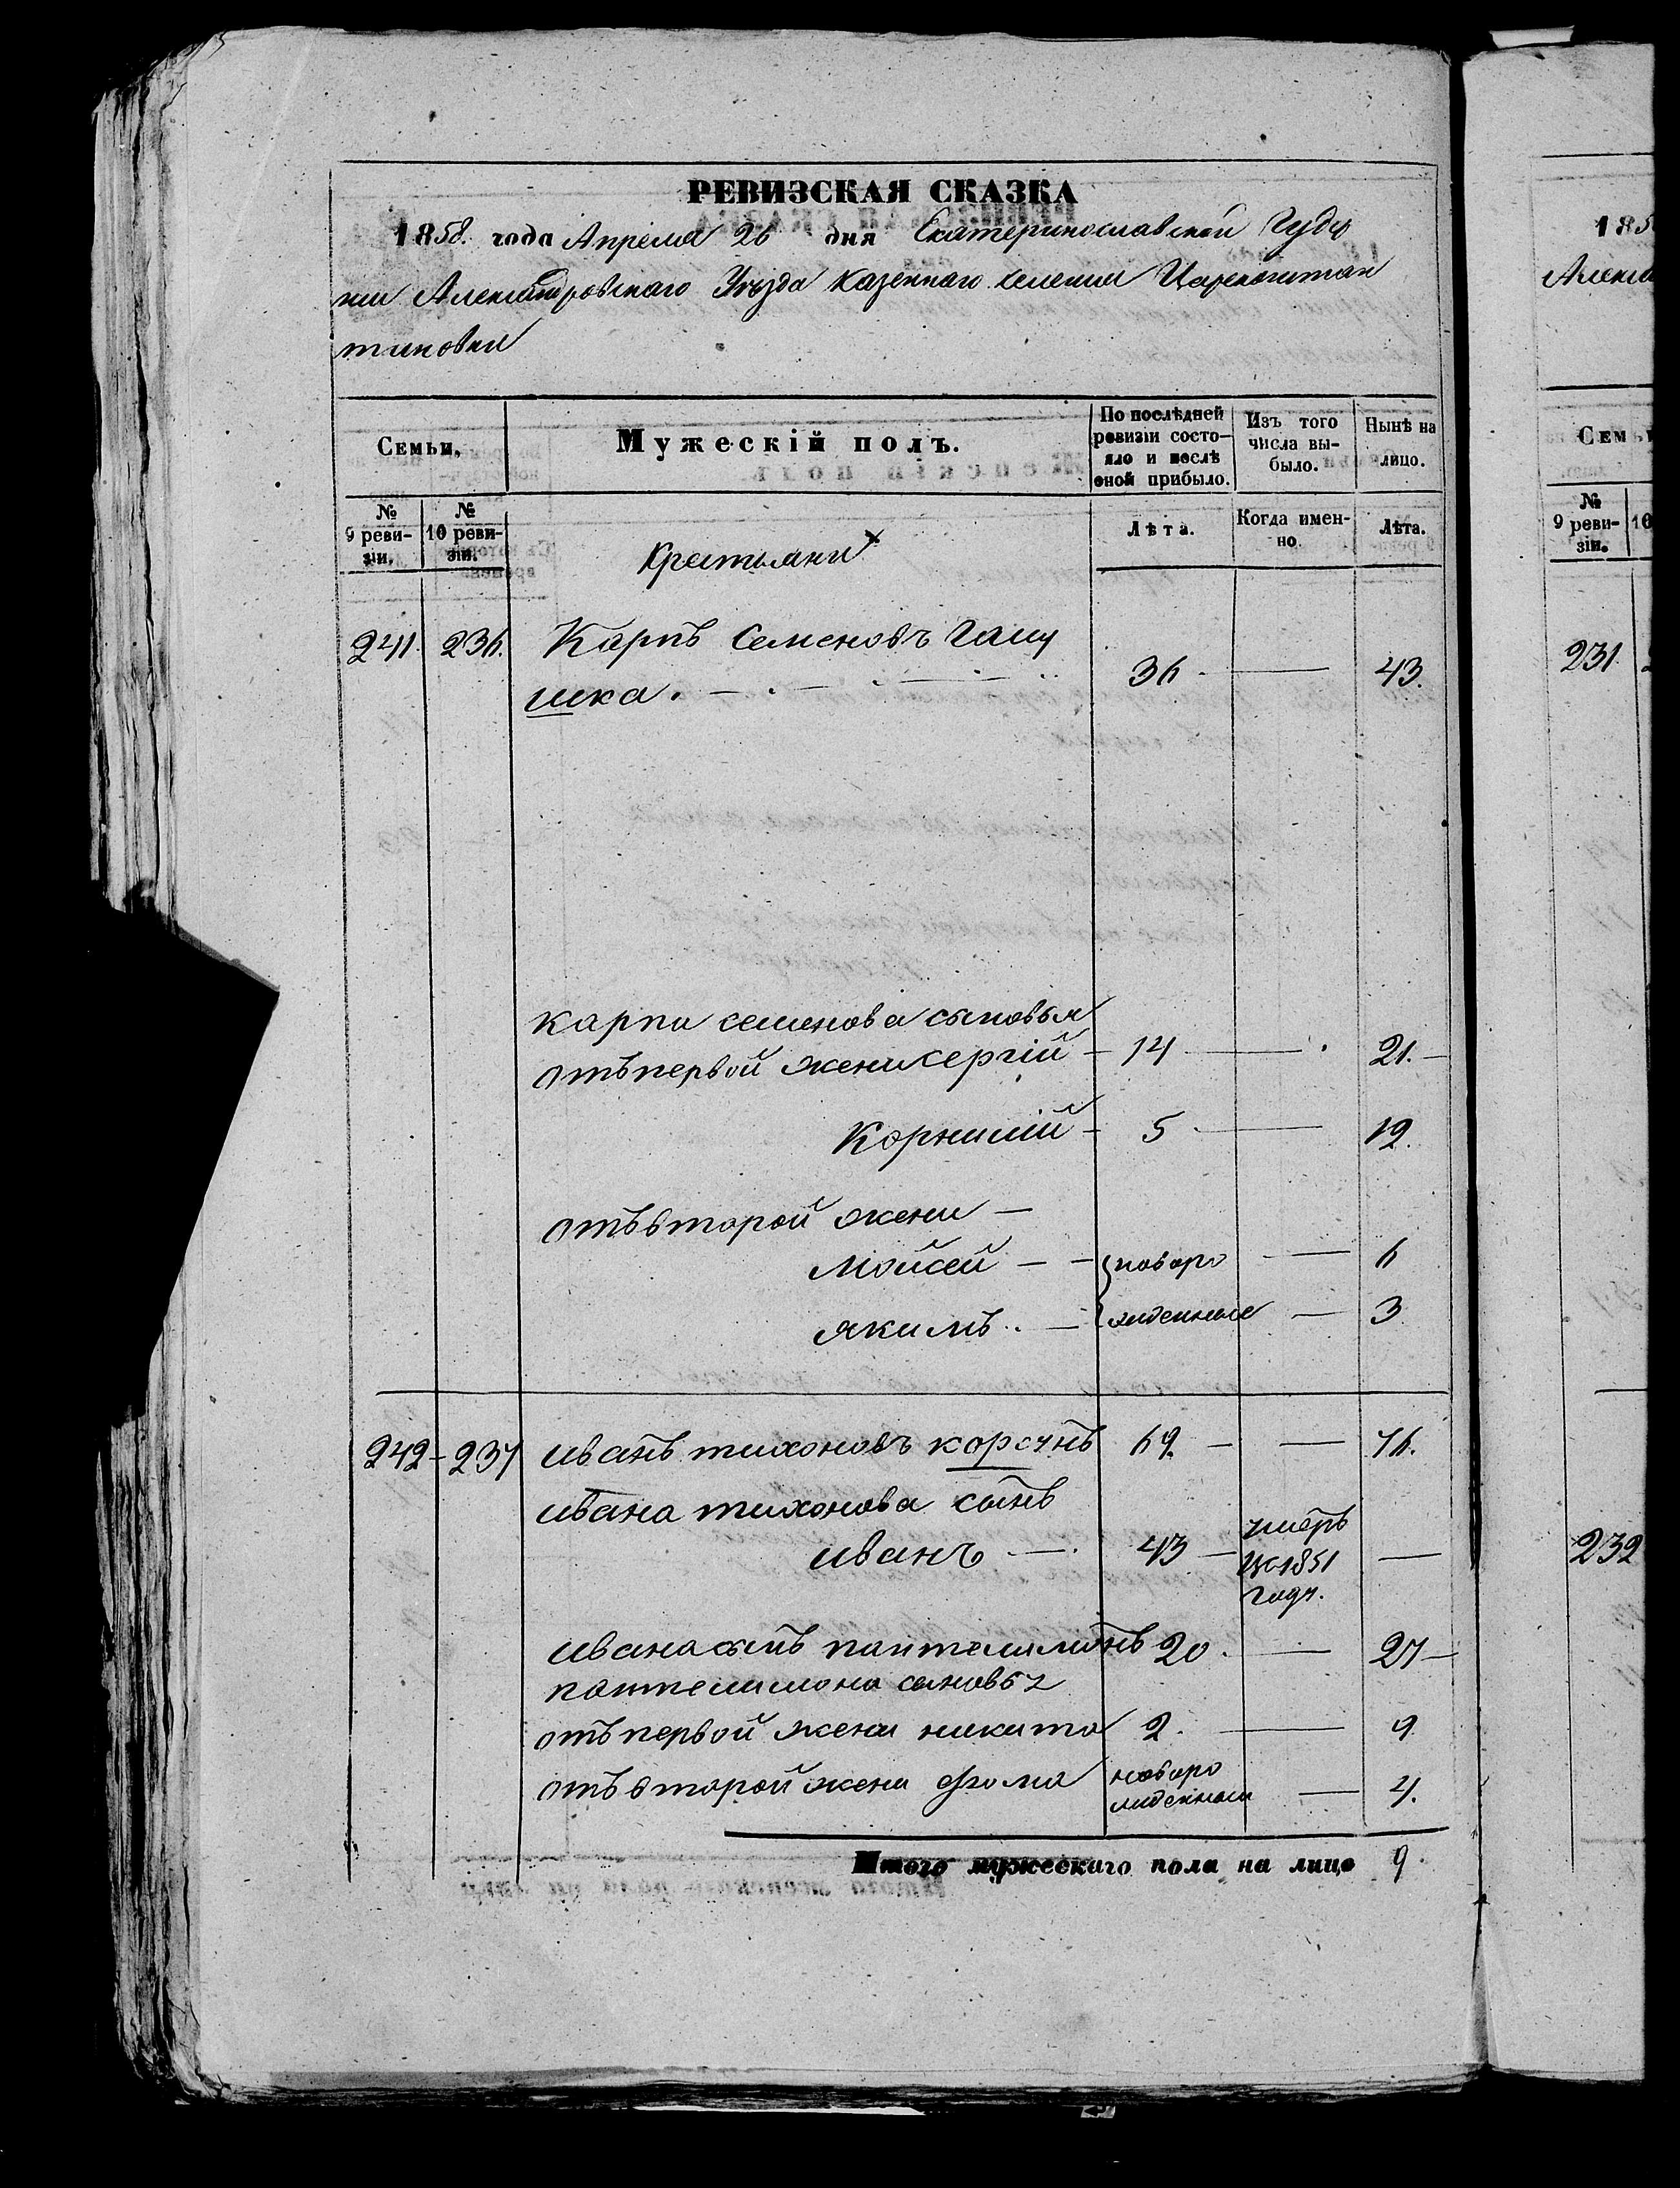 РЕВИЗСКАЯ СКАЗКА
1858. года Апреля 26 дня Екатеринославской Губѣр
нии Александровскаго Уѣзда казеннаго селения Царевоконстан
тиновки
Семьи, Мужескій полъ. По послѣдней ревизіи состояло и послѣ оной прибыло. Изъ того числа выбыло. Нынѣ на лицо.
№ 9 ревизіи. № 10 ревизіи. Лѣта. Когда именно. Лѣта.
Крестьяни
241. 236. Карпъ Семеновъ Галу
шка. 36 — 43.
карпа семенова сыновья
отъ первой жени сергій 14 — 21.
Корнилій 5 — 12.
отъ второй жени —
Мойсей — новоро — 6
якимъ. — жденные — 3
242 - 237 иванъ тихоновъ корсунъ 69. — — 76.
ивана тихонова сынъ
иванъ — 43 — умеръ въ 1851 году. —
ивана сынъ пантелимонъ 20. — 27 —
пантелимона сыновья
отъ первой жени никита 2. — 9
отъ второй жени фома новоро жденный — 4.
Итого мужескаго пола на лице 9.
185
Алекса
Семьи
№ 9 ревизіи. 10
231.
232